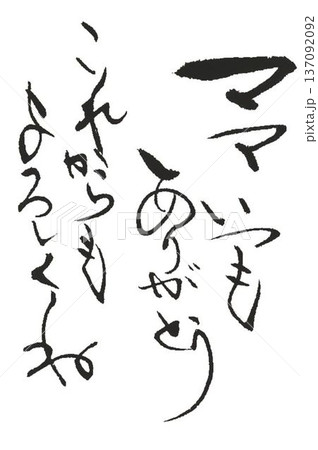 ママ
いつも
ありがとう
これからも
よろしくね
137092092